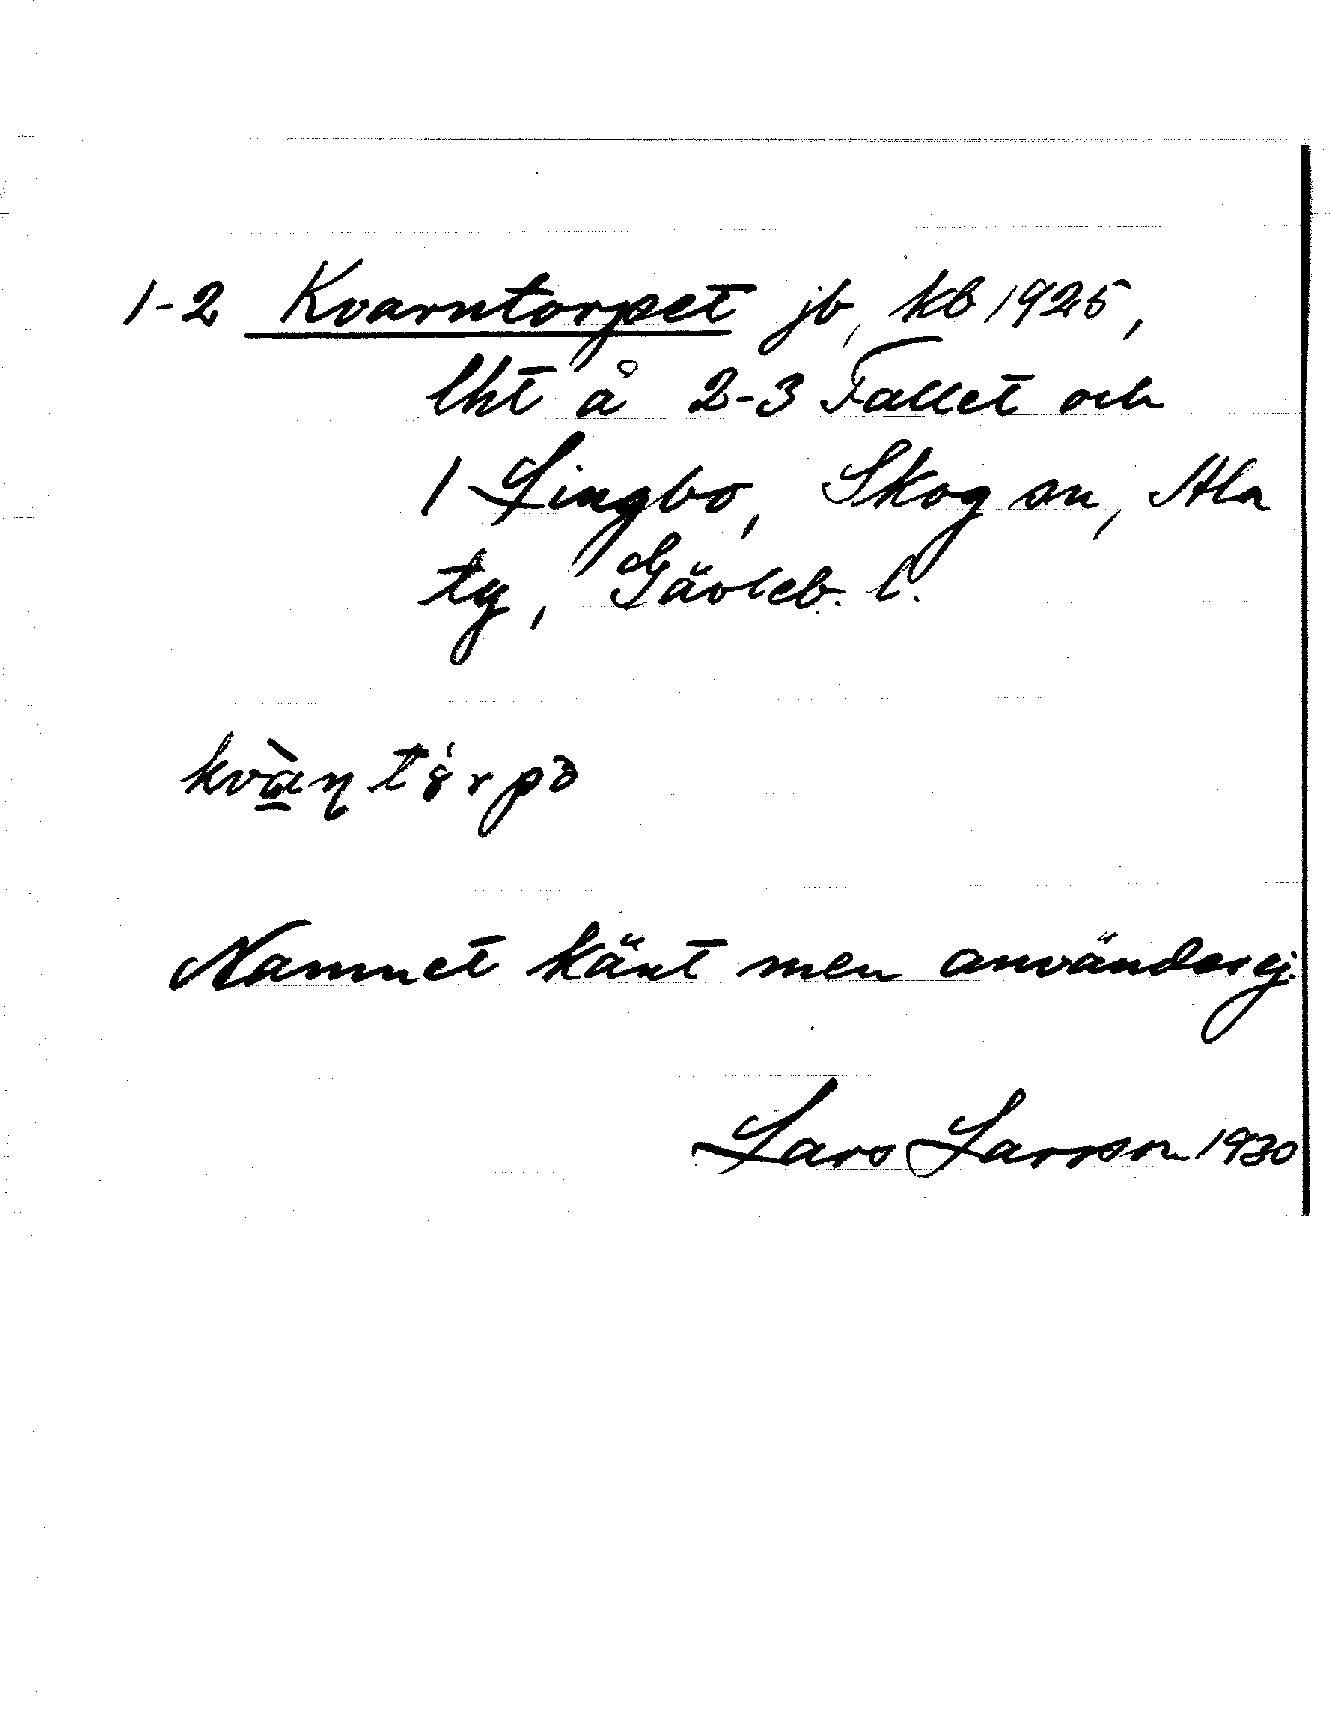 1-2 Kvarntorpet jb, kb 1925,
lht å 2-3 Fallet och
1 Lingbo, Skog sn, Ala
tg, Gävleb. l.
kvàn̥ tȯrpə
Namnet känt men användes ej.
Lars Larsson 1930